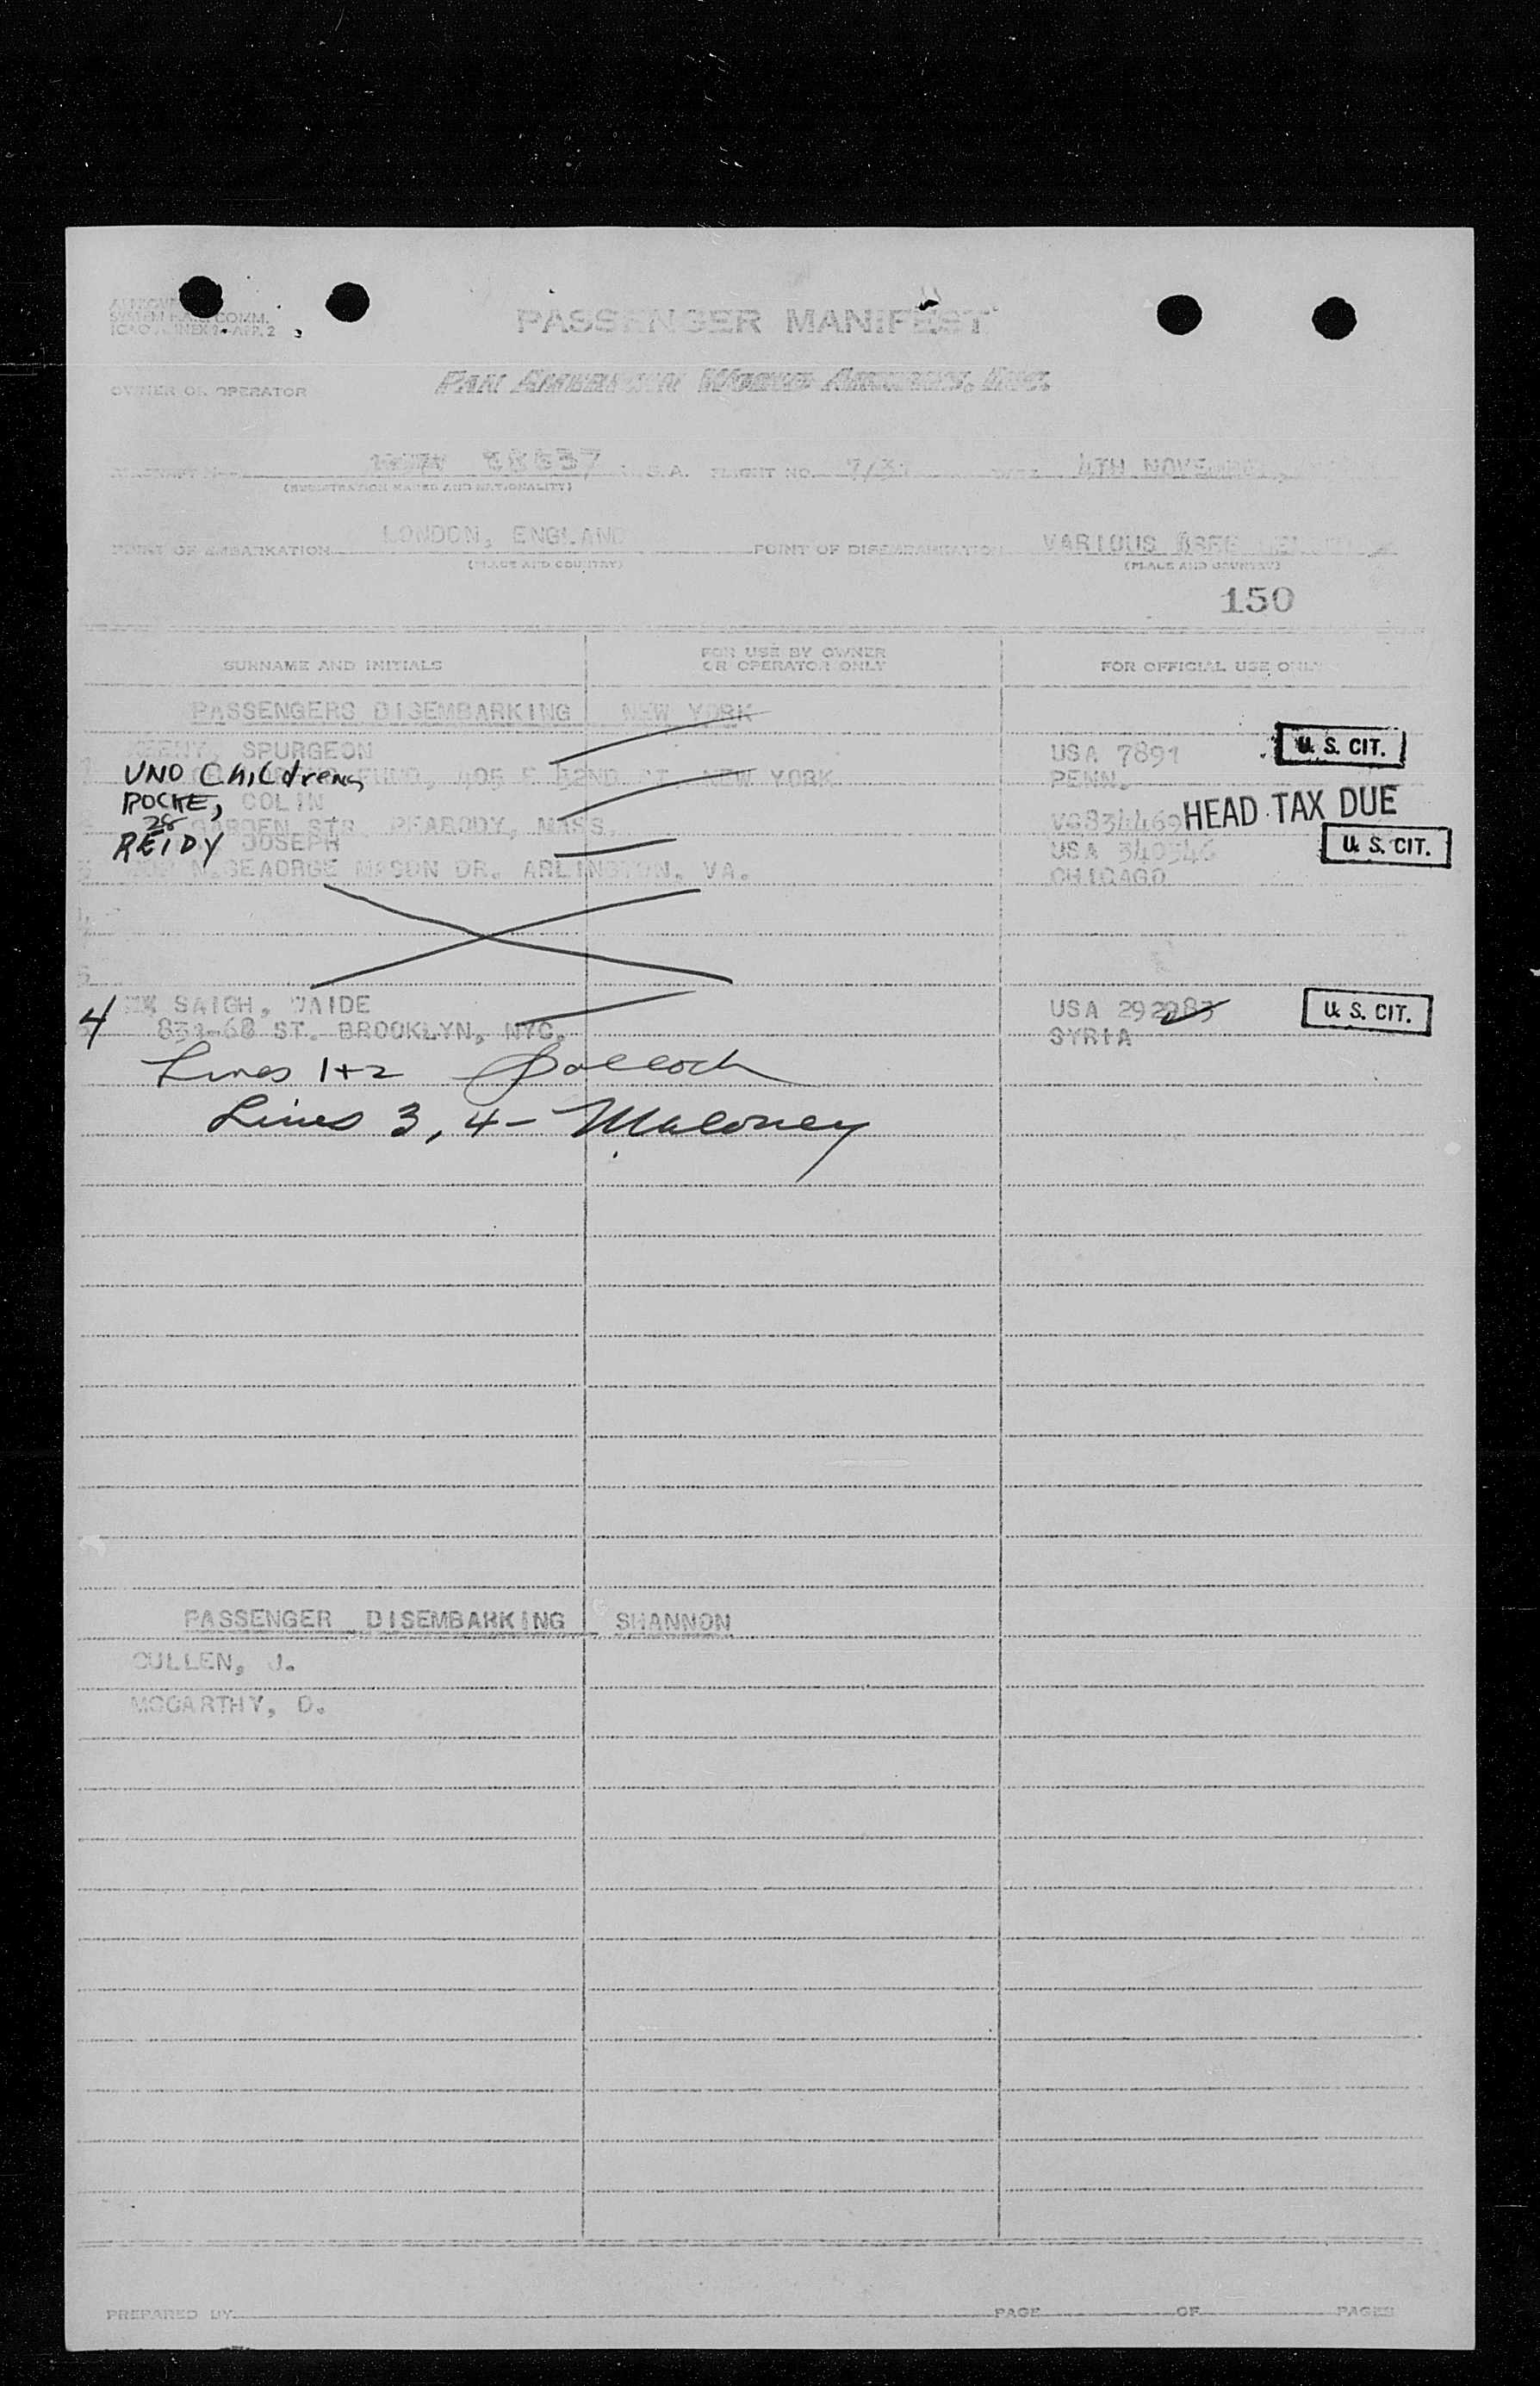 PASSENGER MANIFEST
OWNER OR OPERATOR PAN AMERICAN WORLD AIRWAYS, INC.
FLIGHT NO. 4TH NOVEMBER,
(REGISTRATION MARKS AND NATIONALITY)
POINT OF EMBARKATION LONDON, ENGLAND POINT OF DISEMBARKATION VARIOUS
(PLACE AND COUNTRY) (PLACE AND COUNTRY)
150
SURNAME AND INITIALS FOR USE BY OWNER OR OPERATOR ONLY FOR OFFICIAL USE ONLY
PASSENGERS DISEMBARKING NEW YORK
SPURGEON USA 7891 U. S. CIT.
UNO Childrens FUND, 405 E 42ND ST. NEW YORK PENN.
ROCHE, COLIN
28 GARDEN STR. PEABODY, MASS. HEAD TAX DUE
REIDY JOSEPH USA U. S. CIT.
N.GEADRGE MASON DR. ARLINGTON. VA. CHICAGO
4 SAIGH, WAIDE USA U. S. CIT.
ST. BROOKLYN, NYC. SYRIA
Lines 1+2
Lines 3, 4- Maloney
PASSENGER DISEMBARKING SHANNON
CULLEN, J.
MCCARTHY, D.
PREPARED BY PAGE OF PAGES